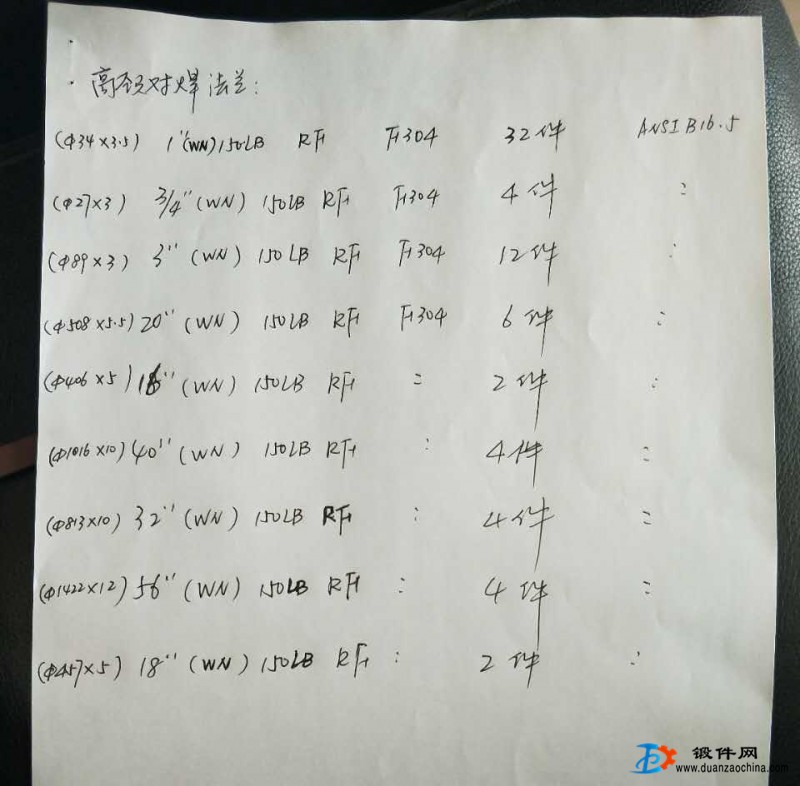 高颈对焊法兰:
(Φ34×3.5) 1"(WN) 150LB RF F304 32件 ANSI B16.5
(Φ27×3) 3/4"(WN) 150LB RF F304 4件 :
(Φ89×3) 3"(WN) 150LB RF F304 12件 :
(Φ508×5.5) 20"(WN) 150LB RF F304 6件 :
(Φ406×5) 16"(WN) 150LB RF = 2件 :
(Φ1016×10) 40"(WN) 150LB RF : 4件 :
(Φ813×10) 32"(WN) 150LB RF : 4件 :
(Φ1422×12) 56"(WN) 150LB RF : 4件 :
(Φ457×5) 18"(WN) 150LB RF : 2件 :
锻件网
www.duanzaochina.com